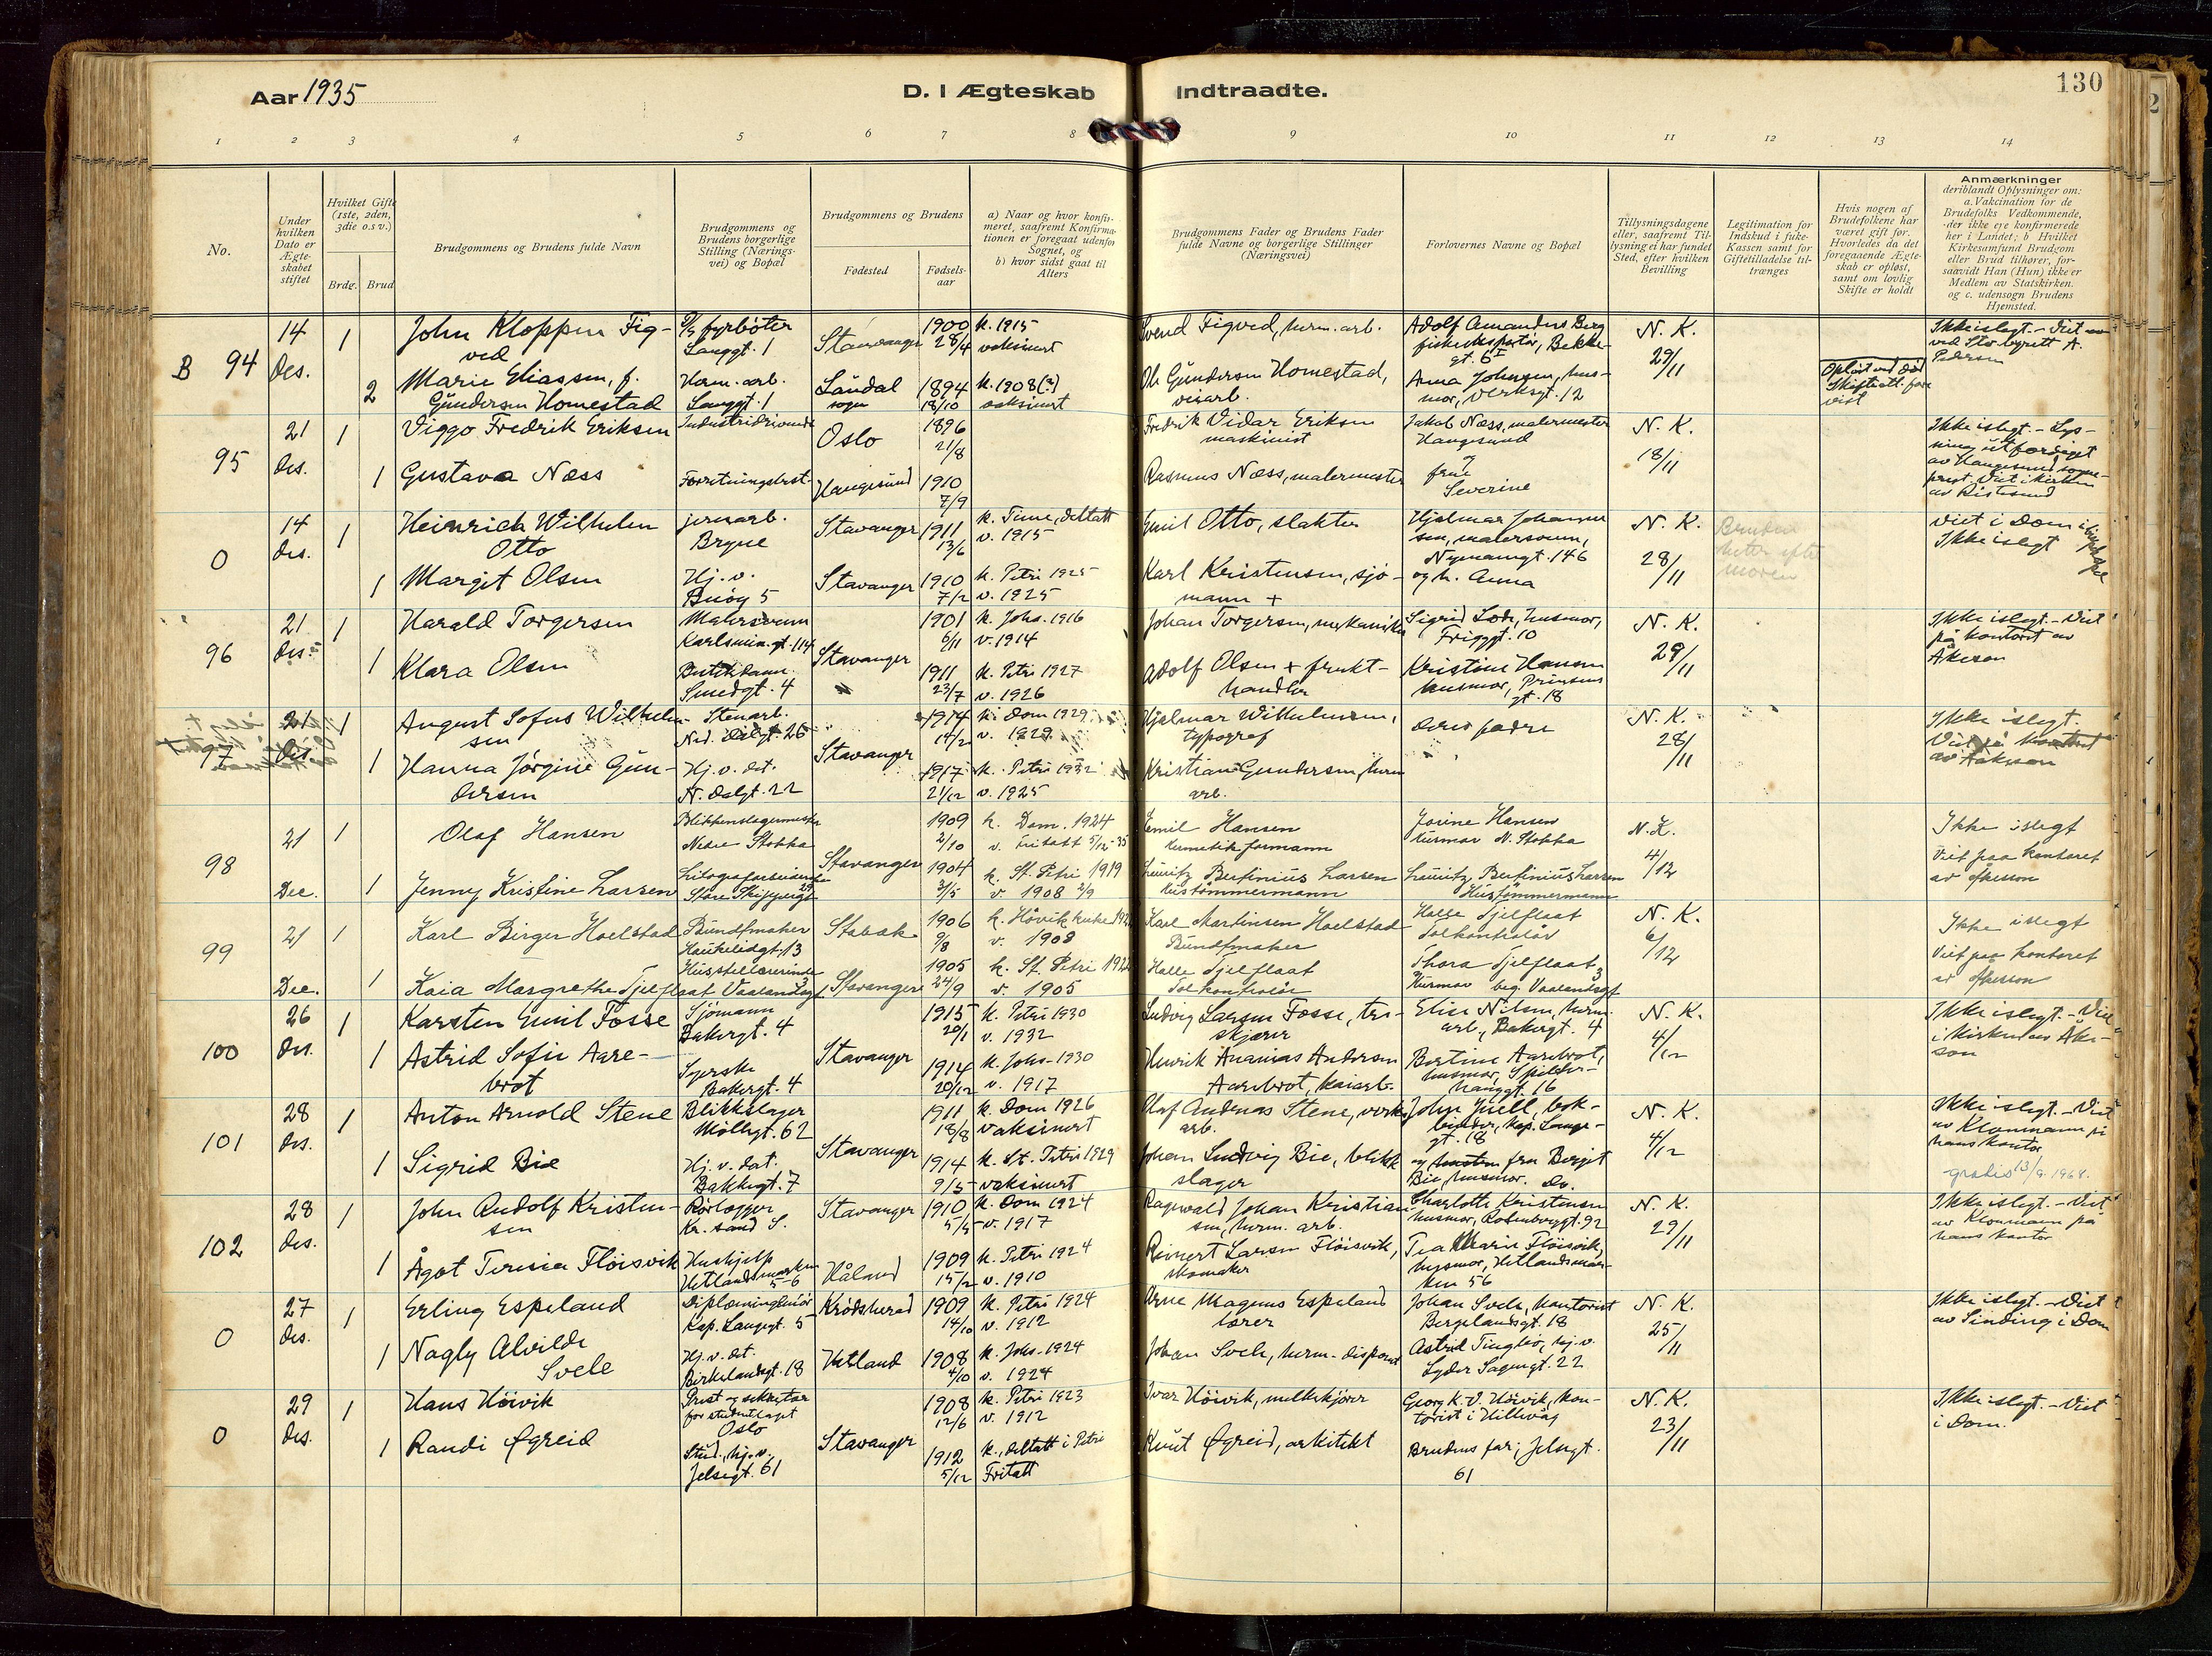 Aar 1935
D. I Ægteskab Indtraadte.
130
1 2 3 4 5 6 7 8 9 10 11 12 13 14
No.
Under hvilken Dato er Ægteskabet stiftet
Hvilket Gifte (1ste, 2den, 3die o.s v.)
Brdg. Brud
Brudgommens og Brudens fulde Navn
Brudgommens og Brudens borgerlige Stilling (Næringsvei) og Bopæl
Brudgommens og Brudens
Fødested
Fødselsaar
a) Naar og hvor konfirmeret, saafremt Konfirmationen er foregaat udenfor Sognet, og
b) hvor sidst gaat til Alters
Brudgommens Fader og Brudens Fader fulde Navne og borgerlige Stillinger (Næringsvei)
Forlovernes Navne og Bopæl
Tillysningsdagene eller, saafremt Tillysning ei har fundet Sted, efter hvilken Bevilling
Legitimation for Indskud i Enke-Kassen samt for Giftetilladelse tiltrænges
Hvis nogen af Brudefolkene har været gift før. Hvorledes da det foregaaende Ægteskab er opløst, samt om lovlig Skifte er holdt
Anmærkninger
deriblandt Oplysninger om: a. Vakcination for de Brudefolks Vedkommende, der ikke ere konfirmerede her i Landet; b Hvilket Kirkesamfund Brudgom eller Brud tilhører, forsaavidt Han (Hun) ikke er Medlem av Statskirken. og c. udensogn Brudens Hjemsted.
B 94 14 Des. 1 John Kloppen Figved D/S fyrbøter Langgt. 1 Stavanger 1900 28/4 k. 1915 vaksinert Svend Figved, herm. arb. Adolf Amandus Berg fiskeeksportør, Bekkegt. 6 N. K. 29/11 Ikke i slegt. - Viet ved Stv. byrett A. Pedersen
2 Marie Eliassen, f. Gundersen Homestad Herm. arb. Langgt. 1 Laudal sogn 1894 18/10 k. 1908 (?) vaksinert Ole Gundersen Homestad, veiarb. Anna Johnsen, husmor, Verksgt. 12 Opløst ved død Skifteatt. forevist
95 21 Des. 1 Viggo Fredrik Eriksen Industridrivende Oslo 1896 21/8 Fredrik Vidar Eriksen maskinist Jakob Næss, malermester Haugesund N. K. 18/11 Ikke i slegt. - Lysning utferdiget av Haugesund sogneprest. Viet i kirken av Ristesund
1 Gustava Næss Forretningsbest. Haugesund 1910 7/9 Rasmus Næss, malermester og frue Severine
0 14 Des. 1 Heinrich Wilhelm Otto jernarb. Bryne Stavanger 1911 13/6 k. Time, deltatt v. 1915 Emil Otto, slakter Hjalmar Johannessen, malersvenn, Nymansgt. 146 N. K. 28/11 Viet i Dom Ikke i slegt
1 Margit Olsen Hj. v. Buøy 5 Stavanger 1910 7/2 k. Petri 1925 v. 1925 Karl Kristensen, sjømann + og h. Anna
96 21 Des. 1 Harald Torgersen Malersvenn Karlsmin.gt 114 Stavanger 1901 6/11 k. Johs. 1916 v. 1914 Johan Torgersen, mekaniker Sigrid Lode, husmor, Friggt. 10 N. K. 29/11 Ikke i slegt. - Viet på kontoret av Åkeson
1 Klara Olsen Butikkdame Smedgt. 4 1911 23/7 k. Petri 1927 v. 1926 Adolf Olsen + frukthandler Kristine Hansen husmor, Prinsensgt. 18
97 21 Des. 1 August Sofus Wilhelmsen Stenarb. Ned. Dalgt. 26 Stavanger 1914 14/2 k. Dom 1929 v. 1929 Hjalmar Wilhelmsen, typograf Deres fedre N. K. 28/11 Ikke i slegt. Viet på kontoret av Åkeson
1 Hanna Jørgine Gundersen Hj. v. det. N. Dalgt. 22 1917 21/12 k. Petri 1932 v. 1925 Kristian Gundersen, herm arb.
98 21 Dec. 1 Olaf Hansen Blikkenslagermester Nedre Stokka Stavanger 1909 2/10 k. Dom. 1924 v. Fritatt 5/12-35 Emil Hansen Hermetikformann Josine Hansen Husmor N. Stokka N. K. 4/12 Ikke i slegt Viet paa kontoret av Åkesson
1 Jenny Kristine Larsen Litografarbeiderske Store Skippergt. 1904 3/5 k. St. Petri 1919 v. 1908 2/9 Lauritz Bertinius Larsen Hustømmermann Lauritz Bertinius Larsen Hustømmermann
99 21 Dec. 1 Karl Birger Hoelstad Buntmaker Haukelidgt. 13 Stabæk 1906 9/8 k. Høvik kirke 192 v. 1908 Karl Martinsen Hoelstad Buntmaker Halle Tjelflaat Tolkontrolør N. K. 6/12 Ikke i slegt Viet paa kontoret av Åkesson
1 Kaia Margrethe Tjelflaat Husstellærerinde Vaalandsgt. 3 Stavanger 1905 24/9 k. St. Petri 192 v. 1905 Halle Tjelflaat Tolkontrolør Thora Tjelflaat Husmor beg. Vaalandsgt 3
100 26 Des. 1 Karsten Emil Fosse Sjømann Bakergt. 4 Stavanger 1915 20/1 k. Petri 1930 v. 1932 Ludvig Larsen Fosse, treskjærer Elise Nilsen, herm. arb., Bakergt. 4 N. K. 4/12 Ikke i slegt. - Viet i kirken av Åkeson
1 Astrid Sofie Aarebrot Syerske Bakergt. 4 1914 20/12 k. Johs. 1930 v. 1917 Henrik Ananias Andersen Aarebrot, kaiarb. Bertine Aarebrot, husmor, Spilderhauggt. 16
101 28 Des. 1 Anton Arnold Stene Blikkslager Møllegt. 62 Stavanger 1911 18/8 k. Dom 1926 vaksinert Olaf Andreas Stene, verksarb. John Juell, bokbinder, Kap. Langegt. 18 N. K. 4/12 Ikke i slegt. - Viet av Klonmann på hans kontor
1 Sigrid Bie Hj. v. dat. Bakkegt. 7 1914 9/5 k. St. Petri 1929 vaksinert Johan Ludvig Bie, blikkslager og fru Bergit Bie, husmor. Do. gratis 13/9. 1964.
102 28 Des. 1 John Rudolf Kristensen Rørlegger Kr. sand S. Stavanger 1910 5/5 k. Dom 1924 v. 1917 Ragnvald Johan Kristiansen, herm. arb. Charlotte Kristensen husmor, Rosenberggt. 92 N. K. 29/11 Ikke i slegt. - Viet av Klonmann på hans kontor
1 Ågot Teresia Fløisvik Hushjelp Hetlandsmarken 56 Håland 1909 15/2 k. Petri 1924 v. 1910 Reinert Larsen Fløisvik, skomaker Tea Marie Fløisvik, husmor, Hetlandsmarken 56
0 27 Des. 1 Erling Espeland Diplomingeniør Kap. Langegt. 5 Krødsherad 1909 14/10 k. Petri 1924 v. 1912 Arne Magnus Espeland lærer Johan Svele, kontorist Bergelandsgt. 18 N. K. 25/11 Ikke i slegt. - Viet av Sinding i Dom
1 Nagly Alvilde Svele Hj. v. det. Birkelandsgt. 18 Hetland 1908 4/10 k. Johs. 1924 v. 1924 Johan Svele, herm. disponent Astrid Tingbø, hj. v. Lyder Sagensgt. 22
0 29 Des. 1 Hans Høivik Prest og sekretær for studentlaget Oslo Stavanger 1908 12/6 k. Petri 1923 v. 1912 Ivar Høivik, melkekjører Georg K. V. Høivik, kontorist i Hillevåg N. K. 23/11 Ikke i slegt. - Viet i Dom.
1 Randi Øgreid Stud., hj. v., Jelsegt. 61 1912 5/12 k., deltatt i Petri Fritatt Knut Øgreid, arkitekt Brudens far, Jelsegt. 61